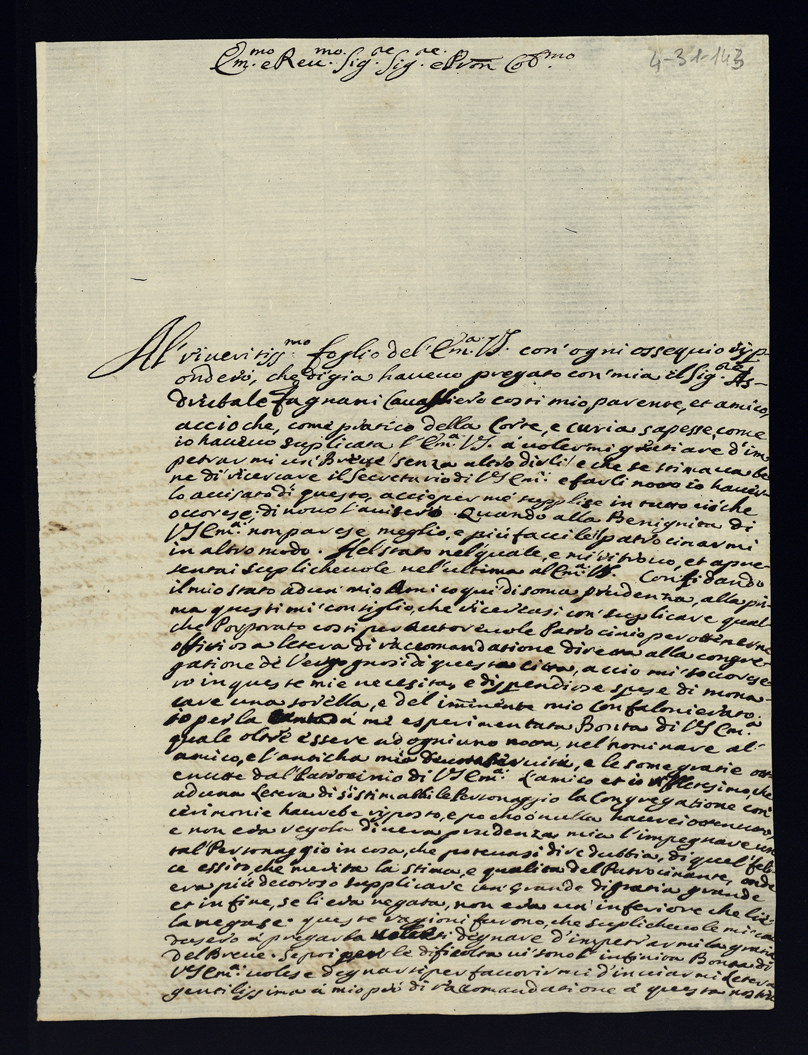 Em.mo e Reu.mo Sig.re Sig.re e Pron Col.mo
4-31-143
Al' riueritiss.mo foglio del' Em.a VS. con' ogni ossequio risp-
onderò, che di gia haueuo pregato con' mia il Sig.r As-
drubale Fagnani Caualliero costi mio parente, et amico,
accioche, come pratico della Corte, e curia sapesse, come
io haueuo suplicata l' Em.a VS. a uolermi gratiare d' im
petrarmi un' Breue (senza altro dirli) e che se stimaua be
ne di ricercare il Secretario di VS Em.a e farli noto io hauer
lo auisato di questo, accio per me suplise in tutto ciò che
occorese, di nouo l' auiserò. Quando alla Benignita di
VS Em.a non parese meglio, e più facile patrocinarmi
in altro modo. Nel stato nel' quale, e mi ritrouo, et apre
sentai suplicheuole nel' ultima al Em.a VS. Confidando
il mio stato ad un' mio Amico qui di soma prudenza, alla pri
ma questi mi consigliò, che ricercasi con' suplicare qual
che Porporato costi per auttoreuole Patrocinio per ottenerne
offitiosa letera di raccomandatione diretta alla congre
gatione de Vergognosi di questa citta, accio mi socorese
ro in queste mie necesita, e dispendiose spese di mona
care una sorella, e del iminente mio Confalonierato
to per la da me esperimentata Bonta di VS Em.a
quale oltre essere ad ogniuno nota, nel' nominare al'
amico, e l' anticha mia seruitù, e le some gratie ott
enute dal Patrocinio di VS Em.a L' amico et io riflettesimo, che
ad una Letera di si stimabile Personaggio la Congregatione con'
cerimonie haurebe risposto, e pocho ò nulla hauerei ottenuto,
e non era regola di uera prudenza mia l' impegnare un
tal' Personaggio in cosa, che poteuasi dire dubbia, di quel' feli
ce essito, che merita la stima, e qualita del Patrocinante, onde
era più decoroso supplicare un' Grande di gratia grande
et in fine, se li era negata, non era un' inferiore che lià
la negase. queste ragioni furono, che suplicheuole mi in
dusero à pregarla si degnare d' impetrarmi la gratia
del Breue. Se poi per le dificolta ui sono l' infinita Bonta di
VS Em.a uolese degnarsi per fauorirmi d' inuiarmi letera
gentilissima à mio pro di racomandatione à questa nostra